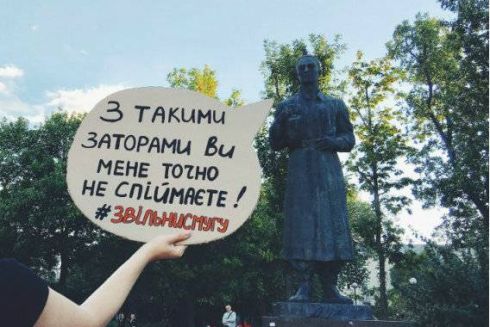 З ТАКИМИ
ЗАТОРАМИ ВИ
МЕНЕ ТОЧНО
НЕ СПІЙМАЄТЕ!
#ЗВІЛЬНИСМУГУ